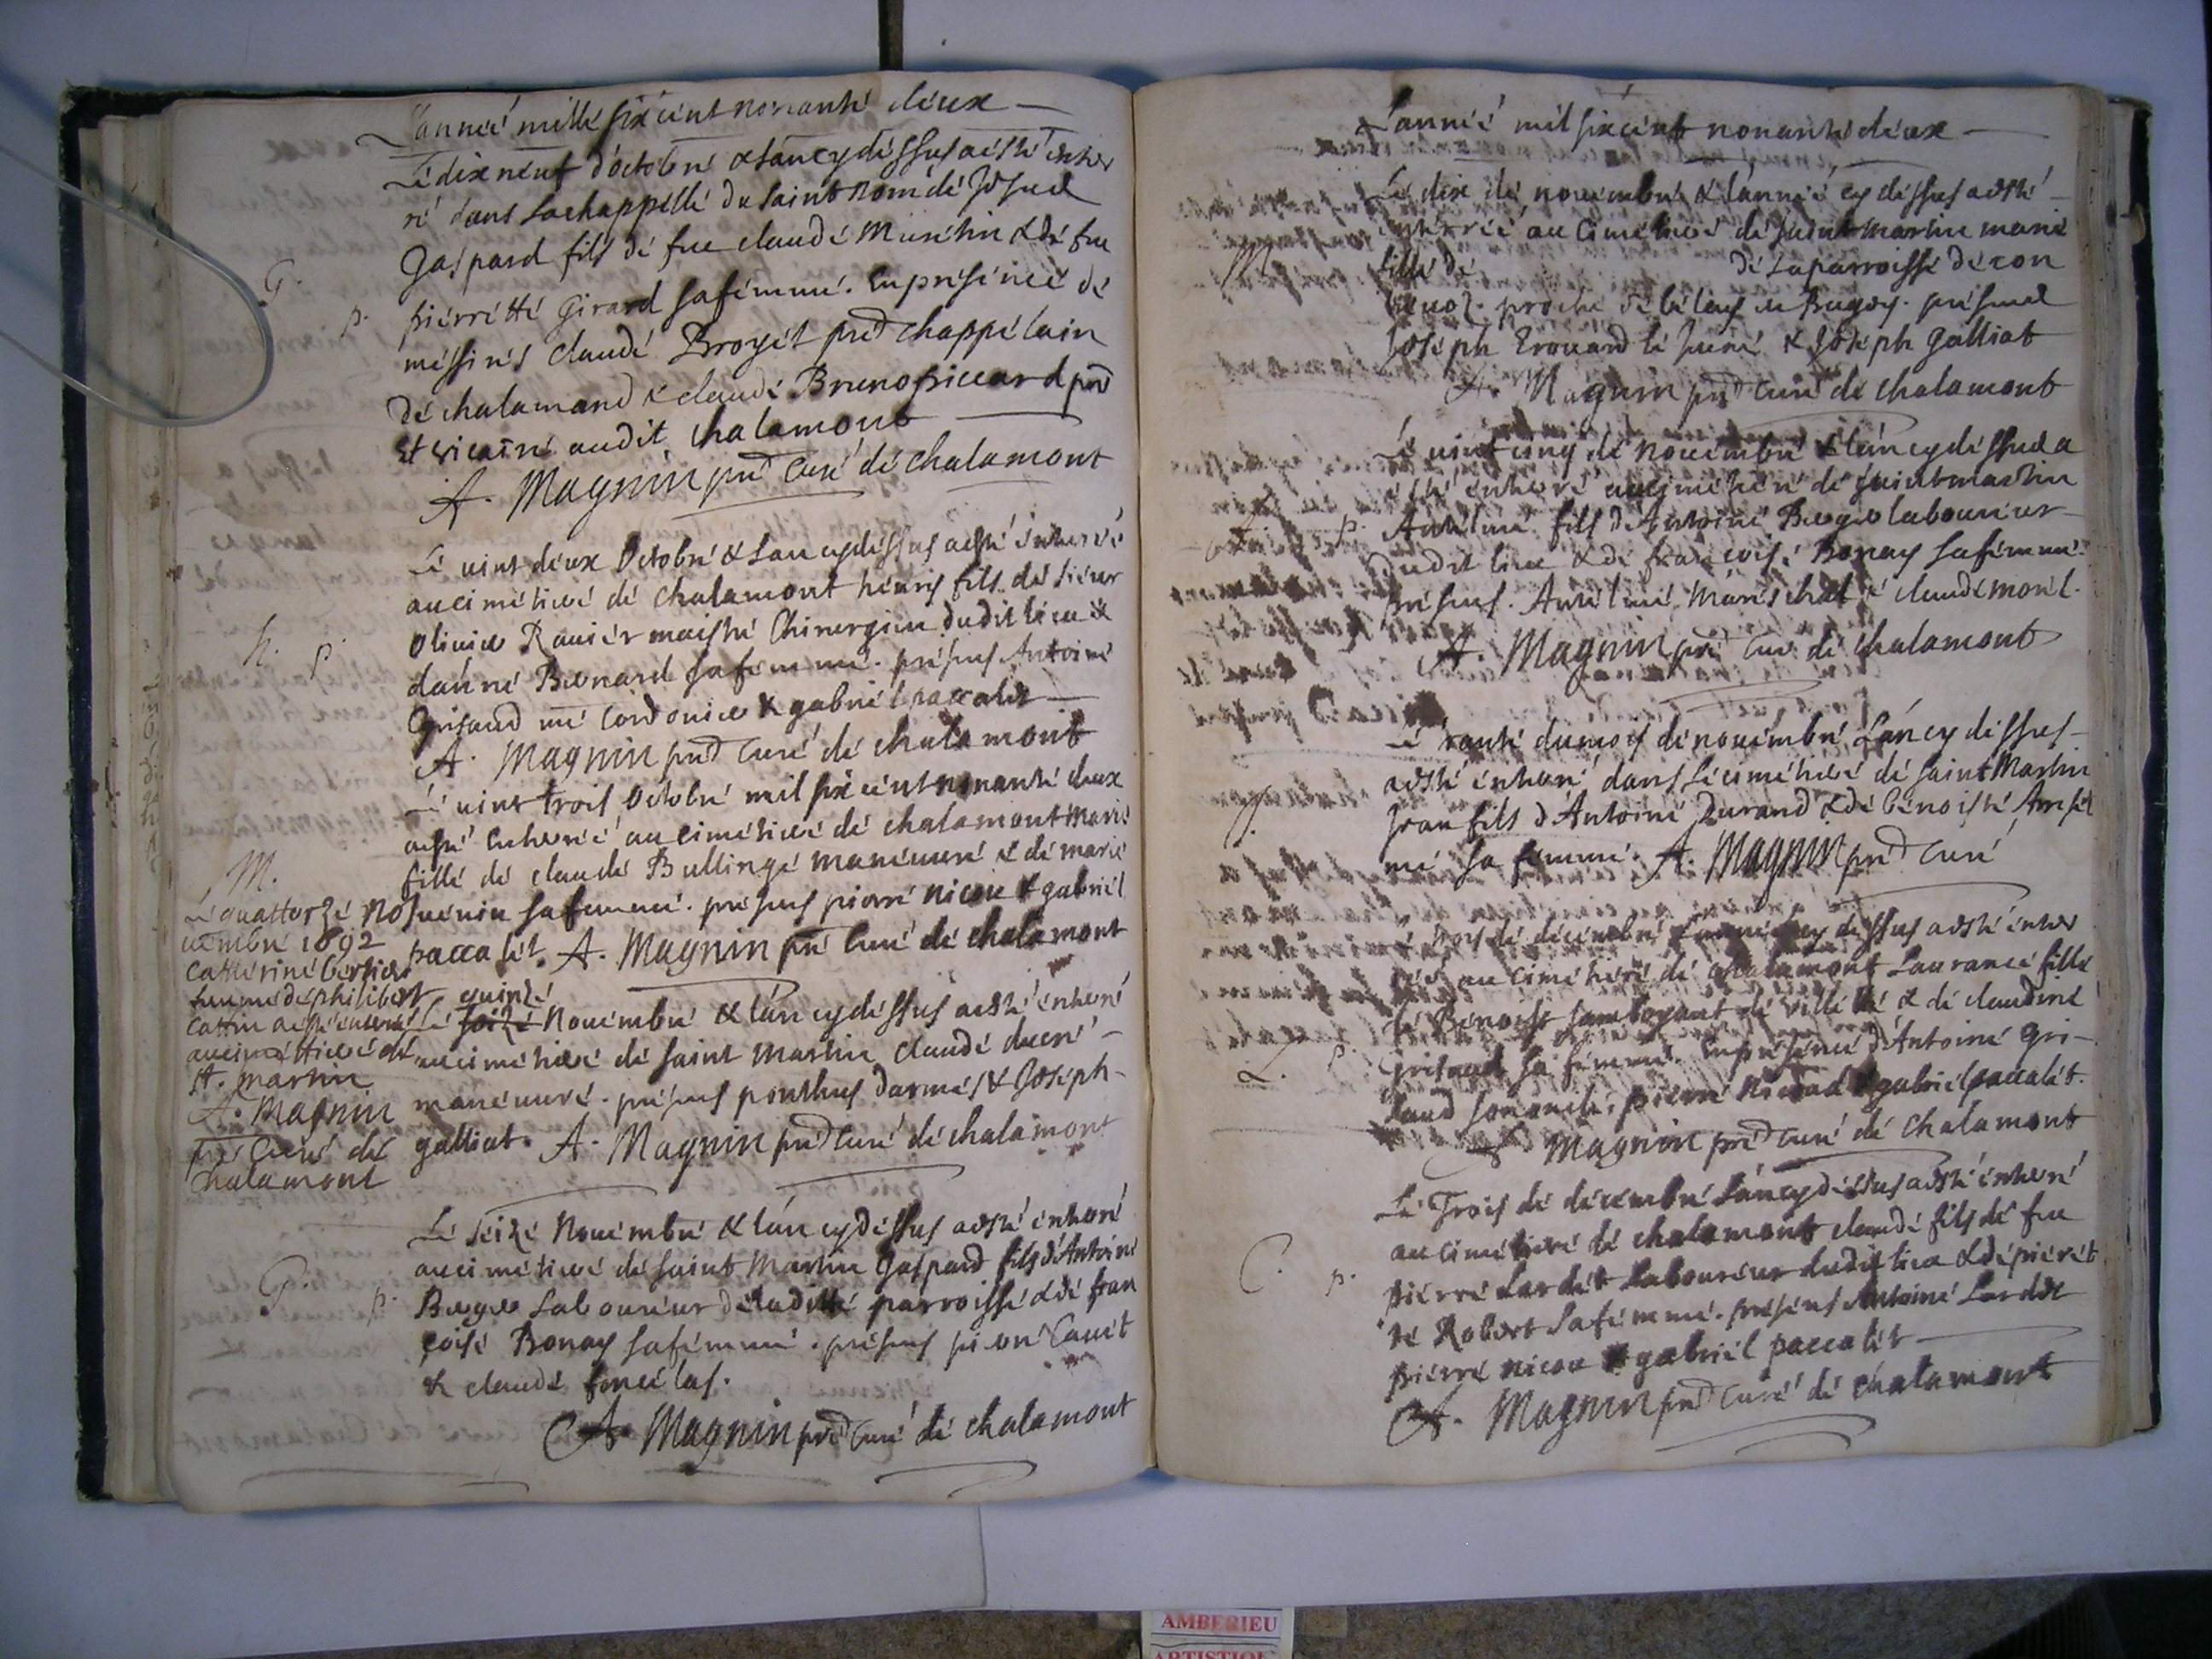 L'anneé mille six cent nonante deux
Le dix neuf d'octobre & lan cy dessus a esté enter
ré dans la chappelle du saint nom de Jesus
G.
p.
Gaspard fils de feu claude Muretin & de feu
pierrette Girard sa femme. En presence de
messires claude Broyet pre chappelain
de chalamond & claude Bruno friccard pre
et vicaire audit chalamont
A. Magnin pre curé de chalamont
Le vint deux Octobre & lan cy dessus a esté enterré
au cimetiere de chalamont henry fils de sieur
h. p.
Olivier Ravier maistre Chirurgien dudit lieu &
danne Bernard sa femme. presens Antoine
Grisaud me cordonier & gabriel paccalet
A. Magnin pre curé de chalamont
Le vint trois Octobre mil six cent nonante deux
a esté enterreé au cimetiere de chalamont Marie
M.
fille de claude Bullinge maneuvre & de marie
Juenin sa femme. presens pierre nicou & gabriel
paccalet. A. Magnin pre curé de chalamont
Le quattorze no
vembre 1692
catterine bertier
femme de philibert
cattin a esté enterreé
au cimettiere de
st. martin
A. Magnin
pre curé de
chalamont
quinze
Le seize Novembre & lan cy dessus a esté enterré
au cimetiere de saint Martin claude ducré
maneuvre. presens ponthus darmes & Joseph
galliat. A. Magnin pre curé de chalamont
Le seize Novembre & lan cy dessus a esté enterré
au cimetiere de saint Martin Gaspard fils d'Antoine
G.
p.
Berger Laboureur de laditte parroisse & de fran
çoise Bonay sa femme. presens pierre Cavet
& claude
A. Magnin pre curé de chalamont
L'anneé mil six cent nonante deux
Le dix de novembre & l'anneé cy dessus a esté
enterreé au cimetiere de saint martin marie
M.
fille de de la parroisse de
proche de beley en Bugey. presens
Joseph Erouard le jeune & Joseph Galliat
A. Magnin pre curé de chalamont
Le vint cinq de novembre & lan cy dessus a
esté enterré au cimetiere de saint martin
A.
p.
Antelme fils d'Antoine Berger laboureur
dudit lieu & de françoise Bonay sa femme.
presens. Antelme Mareschal & claude morel.
A. Magnin pre curé de chalamont
Le trante du mois de novembre L'an cy dessus
a esté enterré dans le cimetiere de saint Martin
J.
Jean fils d'Antoine Durand & de benoiste Ansel
me sa femme. A. Magnin pre curé
Le trois de decembre L'anneé cy dessus a esté enter
reé au cimetiere de chalamont Laurance fille
de Benoist de villette & de claudine
L. p.
Grisaud sa femme. En presence d'Antoine Gri-
saud son oncle, pierre Nicoud & gabriel paccalet.
A. Magnin pre curé de chalamont
Le Trois de decembre L'an cy dessus a esté enterré
au cimetiere de chalamont claude fils de feu
C.
p.
pierre Lardet Laboureur dudit lieu & de pierret
te Robert sa femme. presens Antoine Lardet
pierre nicou & gabriel paccalet
A. Magnin pre curé de chalamont
AMBERIEU
ARTISTIQUE